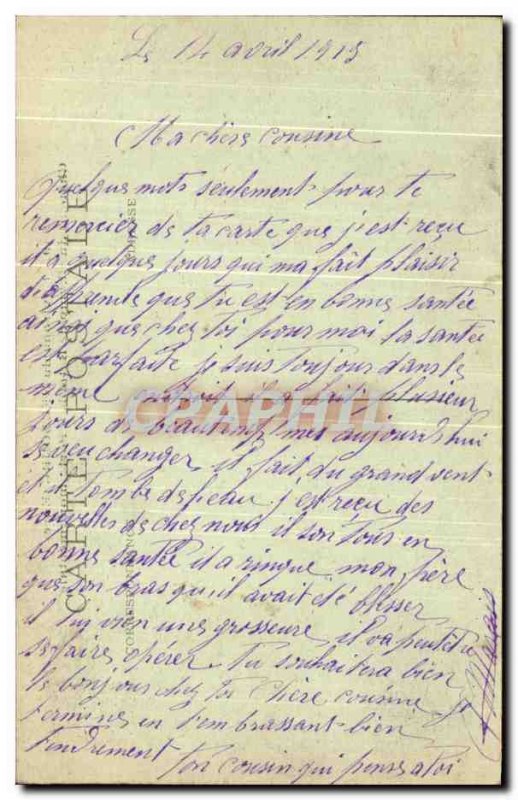 Le 14 avril 1915
Ma chère cousine
quelque mots seulement pour te
remercier de ta carte que j'est reçu
il a quelque jours qui ma fait plaisir
d'aprendre que tu est en bonne santée
ainsi que chez toi pour moi la santée
est parfaite je suis toujour dans le
même endroit il a fait plusieur
jours de beau temps mes aujourd'hui
se veu changer il fait du grand vent
et il tombe de l'eau j'est reçu des
nouvelles de chez nous il son tous en
bonne santée il a rinque mon frère
que son bras qu'il avait été blesser
il lui vien une grosseure il va peutêtre
se faire opérer Tu souhaitera bien
le bonjour chez toi Chère cousine je
termine en t'embrassant bien
tendrement
Ton cousin qui pense a toi
CARTE POSTALE
CORRESPONDANCE
ADRESSE
CPAPHIL